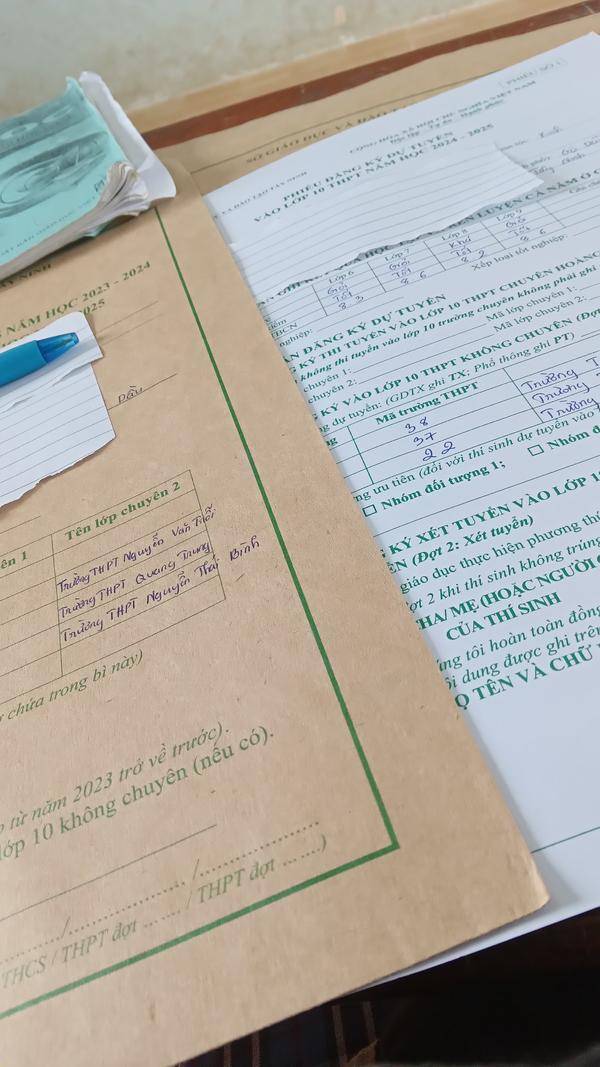 SỞ GIÁO DỤC VÀ ĐÀO
PHIẾU SỐ 1
CỘNG HÒA XÃ HỘI CHỦ NGHĨA VIỆT NAM
Độc lập - Tự do - Hạnh phúc
VÀ ĐÀO TẠO TÂY NINH
PHIẾU ĐĂNG KÝ DỰ TUYỂN
VÀO LỚP 10 THPT NĂM HỌC 2024 - 2025
LUYỆN CẢ NĂM Ở C
Lớp 6
Lớp 7
Lớp 8
Lớp 9
Giỏi
Giỏi
Khá
Tốt
Tốt
Tốt
Tốt
8.3
8.6
8.2
8.6
nghiệp:
Xếp loại tốt nghiệp:
ẦN ĐĂNG KÝ DỰ TUYỂN
KÝ THI TUYỂN VÀO LỚP 10 THPT CHUYÊN HOÀNG
không thi tuyển vào lớp 10 trường chuyên không phải ghi
chuyên 1:
Mã lớp chuyên 1:
chuyên 2:
Mã lớp chuyên 2:
KÝ VÀO LỚP 10 THPT KHÔNG CHUYÊN (Đợt
dự tuyển: (GDTX ghi TX; Phổ thông ghi PT)
Mã trường THPT
38
Trường T
37
Trường
22
Trường
ng ưu tiên (đối với thí sinh dự tuyển vào
Nhóm đối tượng 1;
Nhóm đ
KÝ XÉT TUYỂN VÀO LỚP 1
ÊN (Đợt 2: Xét tuyển)
giáo dục thực hiện phương thứ
ợt 2 khi thí sinh không trúng
HA/ MẸ (HOẶC NGƯỜI
CỦA THÍ SINH
úng tôi hoàn toàn đồng
ội dung được ghi trên
Ọ TÊN VÀ CHỮ
ÂY NINH
NĂM HỌC 2023 - 2024
025
Dầu
ên 1
Tên lớp chuyên 2
Trường THPT Nguyễn Văn Trỗi
Trường THPT Quang Trung
Trường THPT Nguyễn Thái Bình
chứa trong bì này)
từ năm 2023 trở về trước).
lớp 10 không chuyên (nếu có).
THCS / THPT đợt ....... / THPT đợt .......)